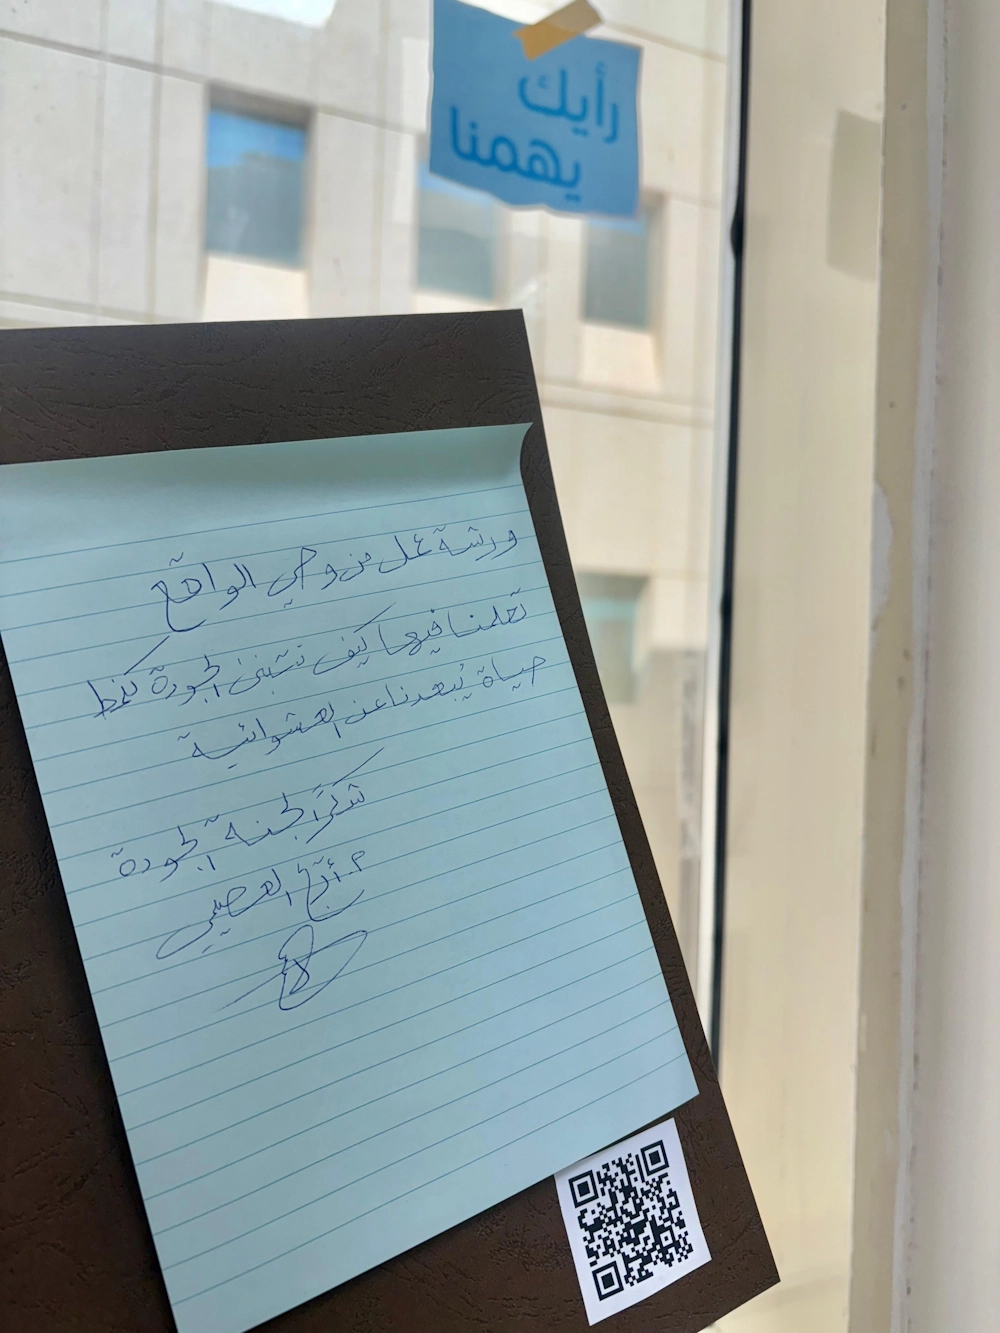 رأيك
يهمنا
ورشة عمل من وحي الواقع
تعلمنا فيها كيف نتبنى الجودة كنمط
حياة يُبعدنا عن العشوائية
شكرًا لجنة الجودة
م. أريج العصيمي